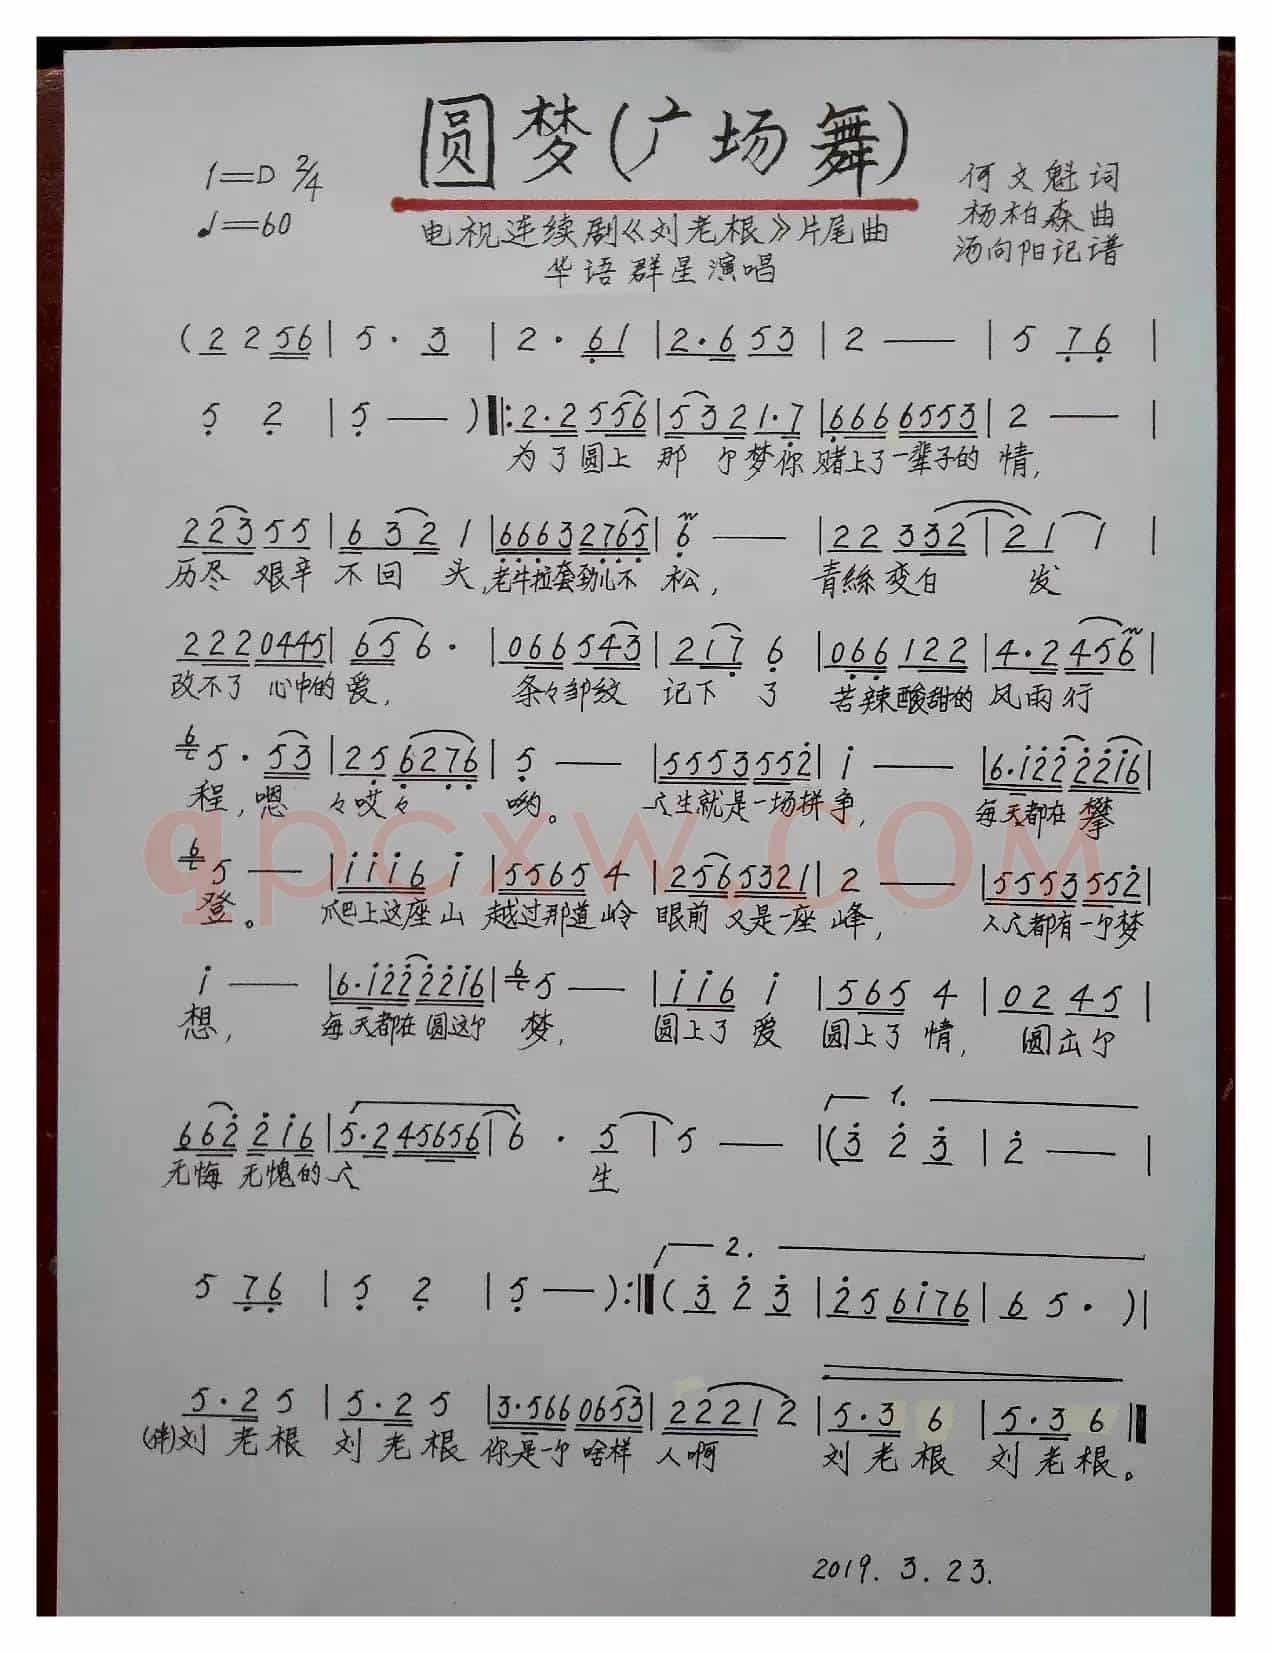 圆梦(广场舞)
1=D 2/4
♩=60
何文魁词
杨柏森曲
汤向阳记谱
电视连续剧《刘老根》片尾曲
华语群星演唱
(2 2 56 | 5 · 3 | 2 · 61 | 2·6 53 | 2 — | 5 76 |
5 2 | 5 — ) ‖: 2·2 556 | 532 1·7 | 666 6553 | 2 — |
为了圆上 那个梦你 赌上了一辈子的 情,
223 55 | 632 1 | 6663 2765 | 6 — | 22 332 | 21 1 |
历尽 艰辛 不回 头, 老牛拉套劲儿不 松, 青絲变白 发
222 0445 | 656 · | 066 543 | 217 6 | 066 122 | 4·2 456 |
改不了 心中的 爱, 条々皱纹 记下 了 苦辣酸甜的 风雨行
6 5 · 53 | 25 6276 | 5 — | 5553 552 | i — | 6·i22 22i6 |
程,嗯 々哎々 哟。 人生就是一场拼争, 每天都在 攀
qpcxw.com
6 5 — | iii6 i | 5565 4 | 256 5321 | 2 — | 5553 552 |
登。 爬上这座山 越过那道岭 眼前 又是一座 峰, 人人都有一个梦
i — | 6·i22 22i6 | 6 5 — | ii6 i | 565 4 | 02 45 |
想, 每天都在 圆这个 梦, 圆上了 爱 圆上了 情, 圆出个
1.
662 2i6 | 5·2 45656 | 6 · 5 | 5 — | (3 2 3 | 2 — |
无悔 无愧的人 生
2.
5 76 | 5 2 | 5 — ) :‖ (3 2 3 | 25 6i76 | 6 5 · ) |
5·2 5 | 5·2 5 | 3·566 0653 | 2221 2 | 5·3 6 | 5·3 6 ‖
(伴)刘 老根 刘 老根 你是一个 啥样 人啊 刘老根 刘老根。
2019.3.23.